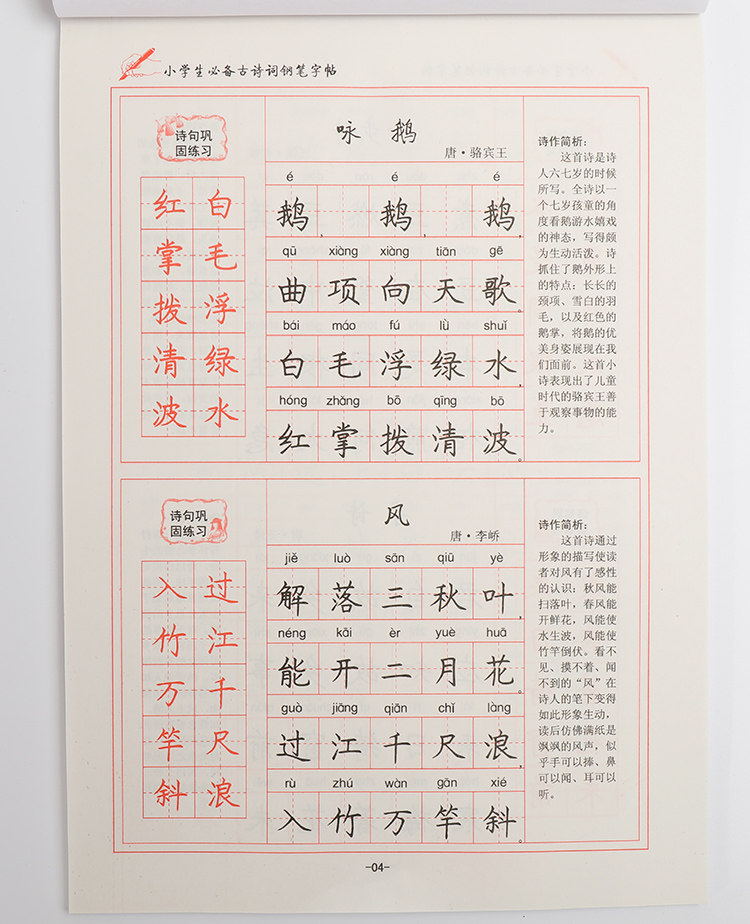 小学生必备古诗词钢笔字帖
诗句巩
固练习
红 白
掌 毛
拨 浮
清 绿
波 水
咏 鹅
唐·骆宾王
é é é
鹅, 鹅, 鹅,
qū xiàng xiàng tiān gē
曲 项 向 天 歌。
bái máo fú lǜ shuǐ
白 毛 浮 绿 水,
hóng zhǎng bō qīng bō
红 掌 拨 清 波。
诗作简析:
这首诗是诗
人六七岁的时候
所写。全诗以一
个七岁孩童的角
度看鹅游水嬉戏
的神态,写得颇
为生动活泼。诗
抓住了鹅外形上
的特点:长长的
颈项、雪白的羽
毛,以及红色的
鹅掌,将鹅的优
美身姿展现在我
们面前。这首小
诗表现出了儿童
时代的骆宾王善
于观察事物的能
力。
诗句巩
固练习
入 过
竹 江
万 千
竿 尺
斜 浪
风
唐·李峤
jiě luò sān qiū yè
解 落 三 秋 叶,
néng kāi èr yuè huā
能 开 二 月 花。
guò jiāng qiān chǐ làng
过 江 千 尺 浪,
rù zhú wàn gān xié
入 竹 万 竿 斜。
诗作简析:
这首诗通过
形象的描写使读
者对风有了感性
的认识:秋风能
扫落叶,春风能
开鲜花,风能使
水生波,风能使
竹竿倒伏。看不
见、摸不着、闻
不到的“风”在
诗人的笔下变得
如此形象生动,
读后仿佛满纸是
飒飒的风声,似
乎手可以捧、鼻
可以闻、耳可以
听。
-04-